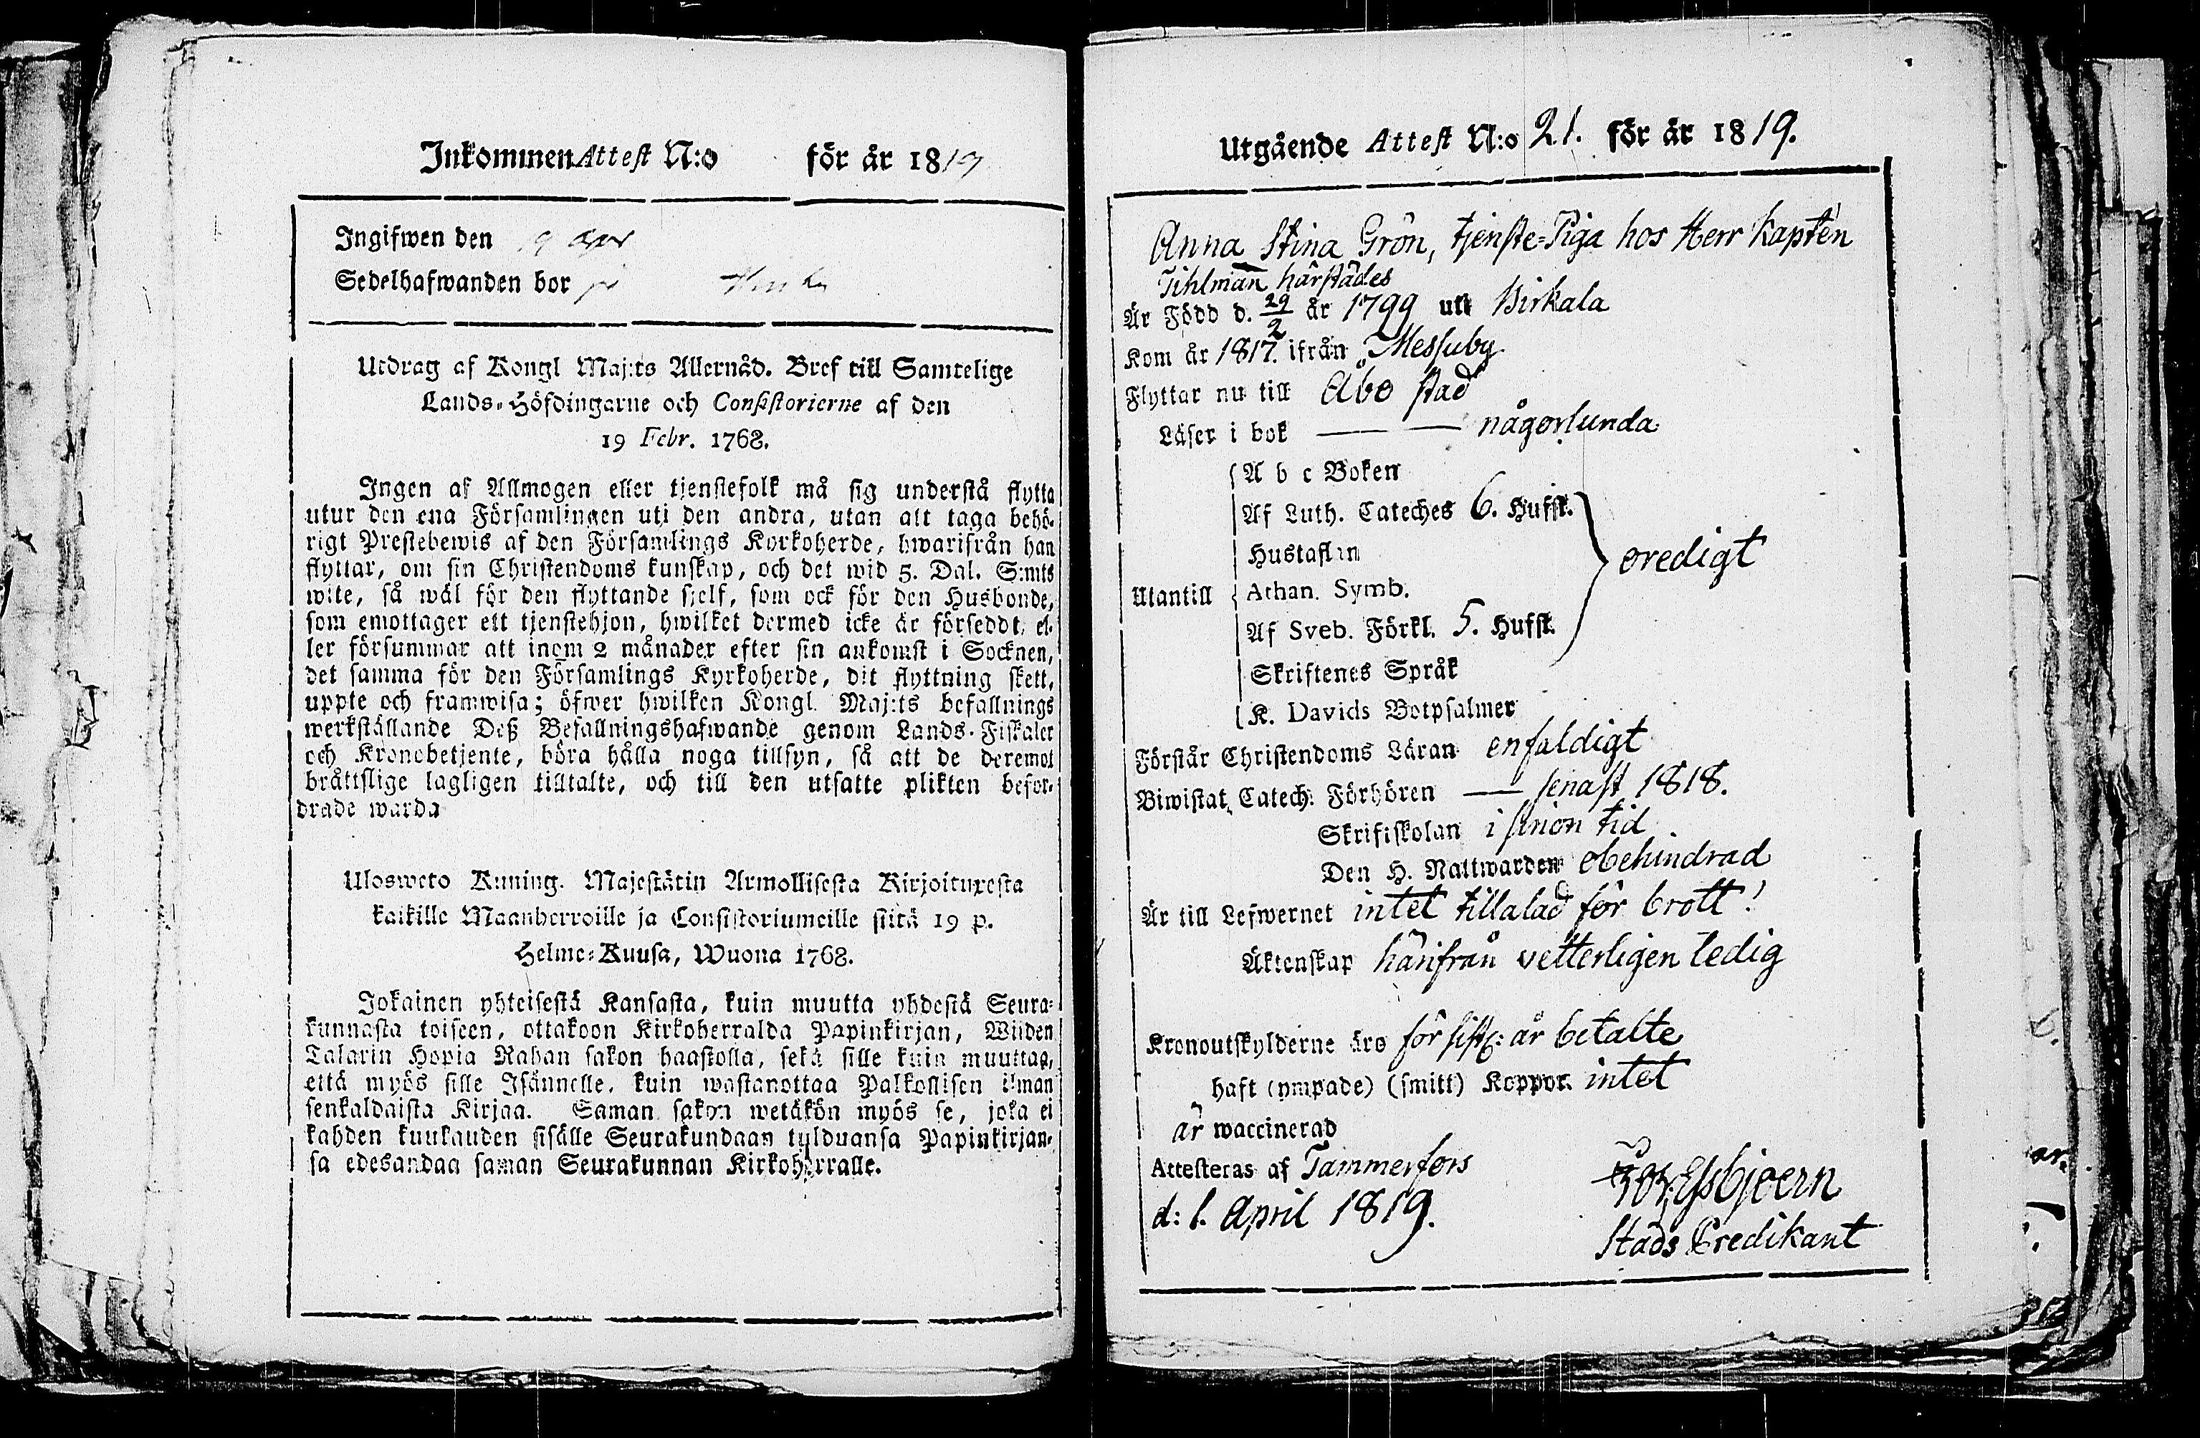 Inkommen Attest N:o för år 1819
Ingifwen den 19 Apr
Sedelhafwanden bor
Utdrag af Kongl Maj:ts Allernåd. Bref till Samtelige
Lands-Höfdingarne och Consistorierne af den
19 Febr. 1768.
Ingen af Allmogen eller tjenstefolk må sig understå flytta
utur den ena Församlingen uti den andra, utan att taga behö-
rigt Prestebewis af den Församlings Korkoherde, hwarifrån han
flyttar, om sin Christendoms kunskap, och det wid 5. Dal. S:mts
wite, så wäl för den flyttande sjelf, som ock för den Husbonde,
som emottager ett tjenstehjon, hwilket dermed icke är förseddt, el-
ler försummar att inom 2 månader efter sin ankomst i Socknen,
det samma för den Församlings Kyrkoherde, dit flyttning skett,
uppte och framwisa; öfwer hwilken Kongl. Maj:ts befallnings
werkställande Deß Befallningshafwande genom Lands-Fiskaler
och Kronobetjente, böra hålla noga tillsyn, så att de deremot
bråttslige lagligen tilltalte, och till den utsatte plikten befor-
drade warda
Ulosweto Kuning. Majestätin Armollisesta Kirjoituxesta
kaikille Maanherroille ja Consistoriumeille siitä 19 p.
Helme-Kuusa, Wuona 1768.
Jokainen yhteisestä Kansasta, kuin muutta yhdestä Seura-
kunnasta toiseen, ottakoon Kirkoherralda Papinkirjan, Wiiden
Talarin Hopia Rahan sakon haastolla, sekä sille kuin muuttaa,
että myös sille Isännelle, kuin wastanottaa Palkollisen ilman
senkaldaista Kirjaa. Saman sakon wetäkön myös se, joka ei
kahden kuukauden sisälle Seurakundaan tulduansa Papinkirjan-
sa edesandaa saman Seurakunnan Kirkoherralle.
Utgående Attest N:o 21. för år 1819.
Anna Stina Grön, tjenste-Piga hos Herr Kaptén
Tihlman härstädes
Är Född d. 29/2 år 1799 uti Birkala
Kom år 1817. ifrån Messuby
Flyttar nu till Åbo stad
Läser i bok — — någorlunda
A b c Boken
Af Luth. Cateches 6. Hufst.
Hustaflan
Utantill Athan. Symb. oredigt
Af Sveb. Förkl. 5. Hufst.
Skriftenes Språk
K. Davids Botpsalmer
Förstår Christendoms Läran enfaldigt
Biwistat Catech: Förhören — senast 1818.
Skriftskolan i sinon tid
Den H. Nattwarden obehindrad
Är till Lefwernet intet tillalad för brott!
Äktenskap härifrån vetterligen ledig
Kronoutskylderne äro för sistl: år betalte
haft (ympade) (smitt) Koppor intet
är waccinerad
Attesteras af Tammerfors
d: 1. April 1819.
Essbjoern
Stads Predikant